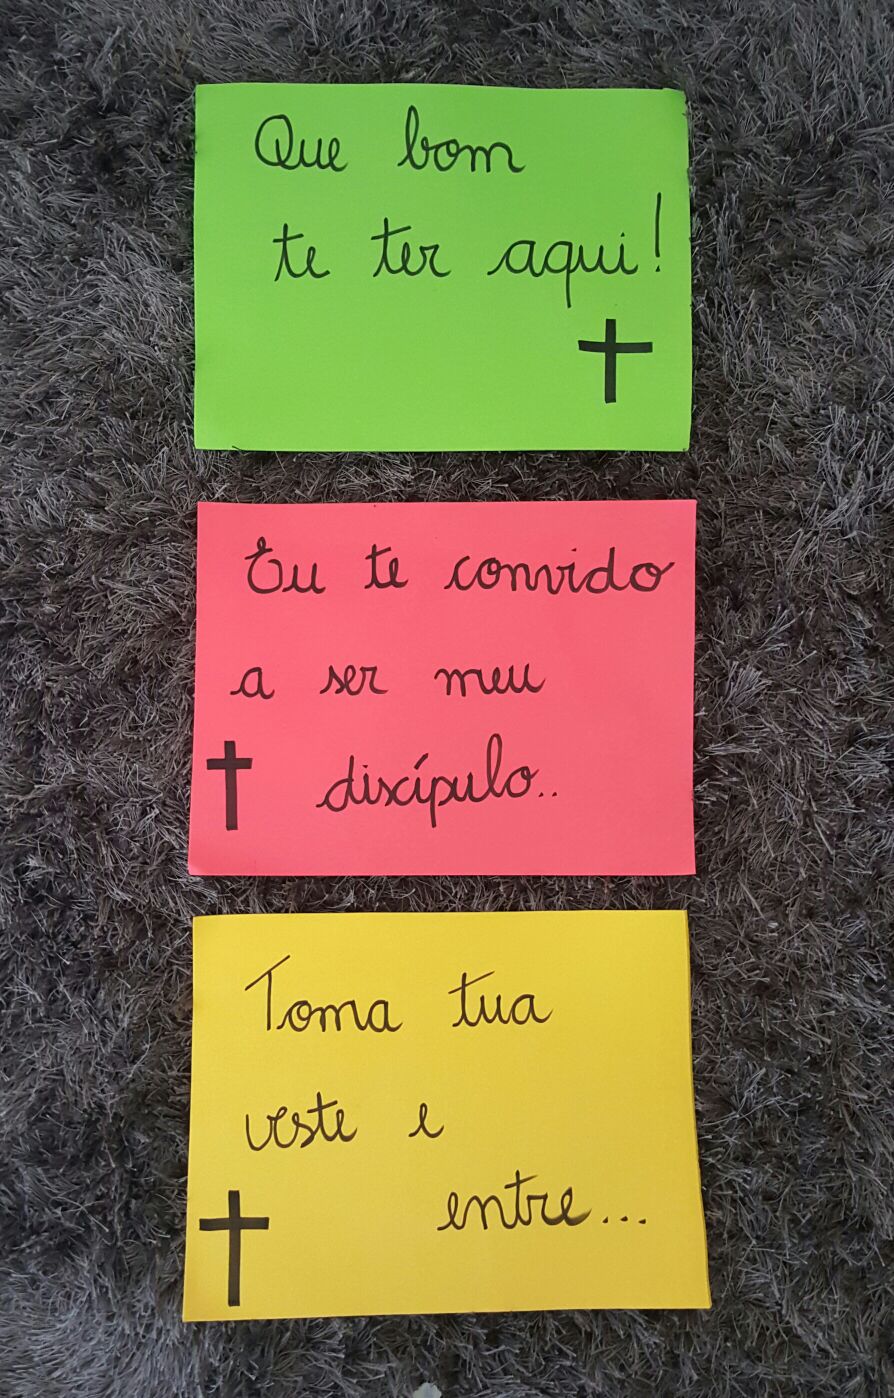 Que bom
te ter aqui!
Eu te convido
a ser meu
discípulo..
Toma tua
veste e
entre...